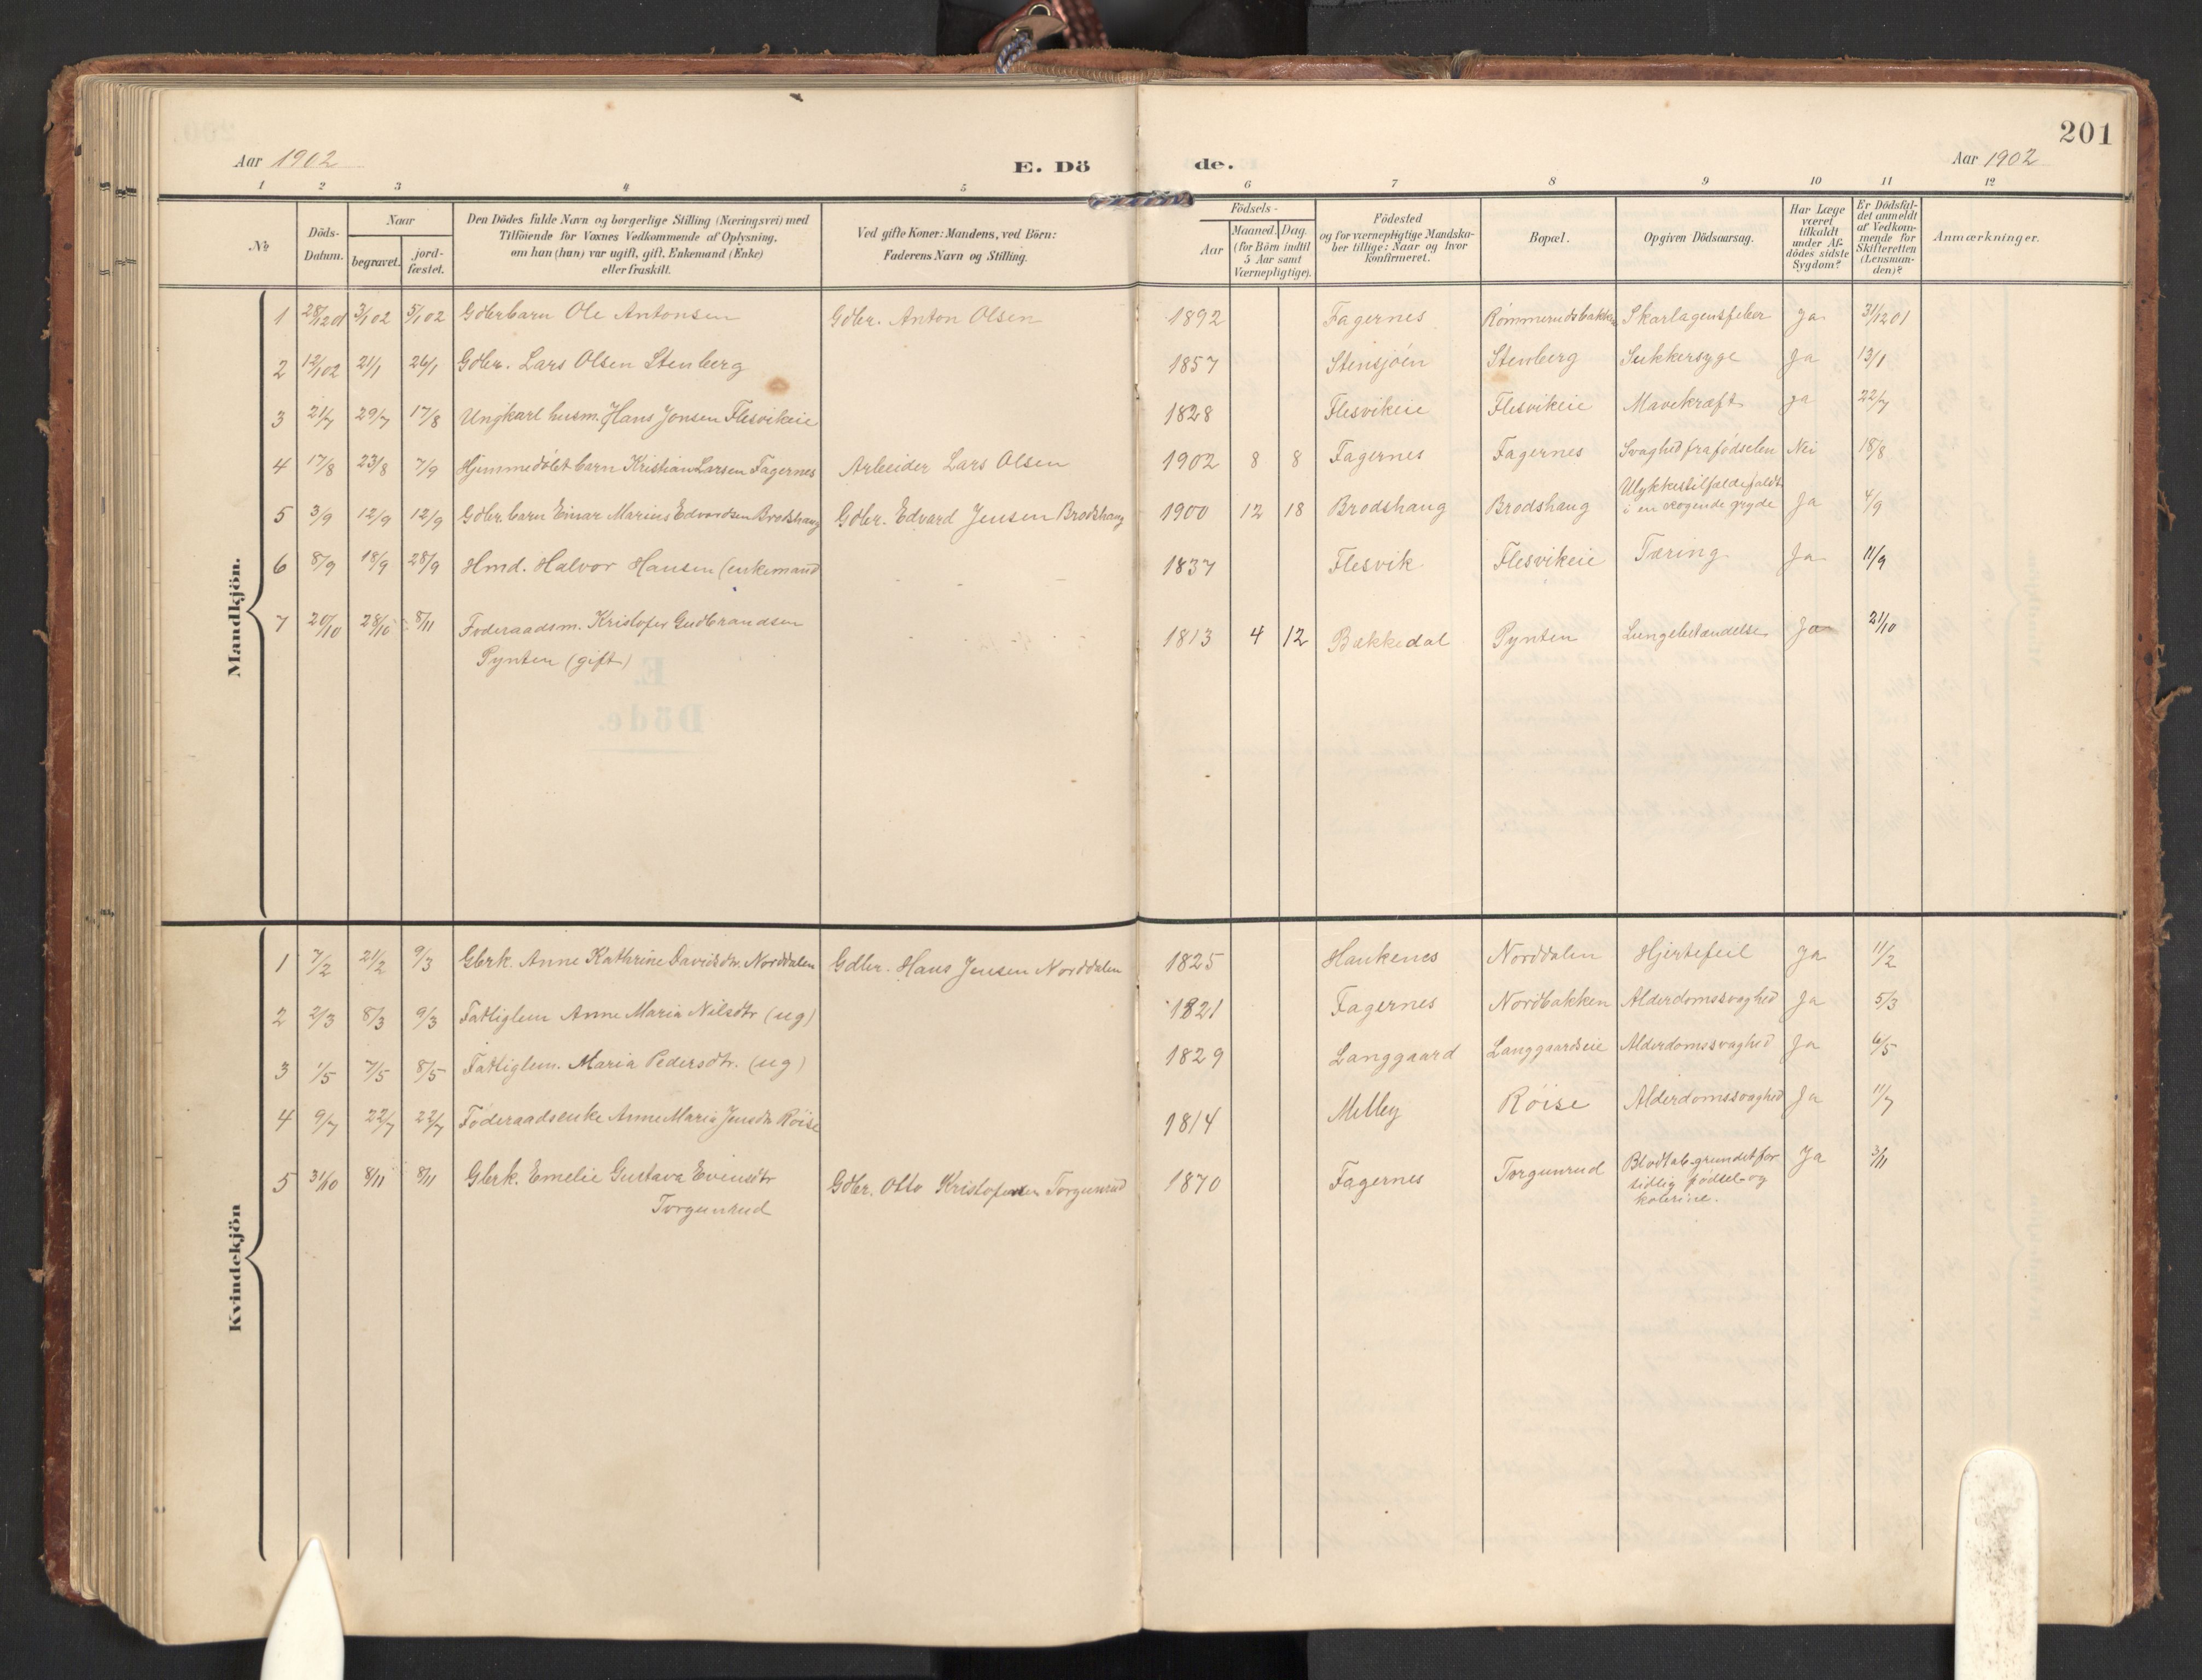 201
Aar 1902
E. Dö
de.
Aar 1902
1 2 3 4 5 6 7 8 9 10 11 12
№
Döds-Datum.
Naar
begravet.
jord-fæstet.
Den Dödes fulde Navn og borgerlige Stilling (Næringsvei) med
Tilföiende for Voxnes Vedkommende af Oplysning,
om han (hun) var ugift, gift, Enkemand (Enke)
eller fraskilt.
Ved gifte Koner: Mandens, ved Börn:
Faderens Navn og Stilling.
Födsels-
Aar
Maaned. Dag.
(for Börn indtil
5 Aar samt
Værnepligtige).
Födested
og for værnepligtige Mandska-
ber tillige: Naar og hvor
konfirmeret.
Bopæl.
Opgiven Dödsaarsag.
Har Læge
været
tilkaldt
under Af-
dödes sidste
Sygdom?
Er Dödsfal-
det anmeldt
af Vedkom-
mende for
Skifteretten
(Lensman-
den)?
Anmærkninger.
Mandkjön.
1 28/12 01 3/1 02 5/1 02 Gdbrbarn Ole Antonsen Gdbr. Anton Olsen 1892 Fagernes Rømmerudsbakken Skarlagensfeber Ja 31/12 01
2 12/1 02 21/1 26/1 Gdbr. Lars Olsen Stenberg 1857 Stensjøen Stenberg Sukkersyge Ja 13/1
3 21/7 29/7 17/8 Ungkarl husm. Hans Jonsen Flesvikeie 1828 Flesvikeie Flesvikeie Mavekræft Ja 22/7
4 17/8 23/8 7/9 Hjemmedøbt barn Kristian Larsen Fagernes Arbeider Lars Olsen 1902 8 8 Fagernes Fagernes Svaghed fra fødselen Nei 18/8
5 3/9 12/9 12/9 Gdbr. barn Einar Marius Edvardsen Brodshaug Gdbr. Edvard Jensen Brodshaug 1900 12 18 Brodshaug Brodshaug Ulykkestilfælde faldt
i en kogende gryde Ja 4/9
6 8/9 18/9 28/9 Hmd. Halvor Hansen (enkemand 1837 Flesvik Flesvikeie Tæring Ja 11/9
7 20/10 28/10 8/11 Foderaadsm. Kristofer Gudbrandsen 1813 4 12 Bakkedal Pynten Lungebetændelse Ja 21/10
Pynten (gift)
Kvindekjön
1 7/2 21/2 9/3 Gbrk. Anne Kathrine Davidsdtr. Norddalen Gdbr. Hans Jensen Norddalen 1825 Haukenes Norddalen Hjertefeil Ja 11/2
2 2/3 8/3 9/3 Fattiglem Anne Maria Nilsdtr (ug) 1821 Fagernes Nordbakken Alderdomssvaghed Ja 5/3
3 1/5 7/5 8/5 Fattiglem. Maria Pedersdtr. (ug) 1829 Langgaard Langgaardseie Alderdomssvaghed Ja 6/5
4 9/7 22/7 22/7 Føderaadsenke Anne Maria Jensdtr Røise 1814 Melby Røise Alderdomssvaghed Ja 11/7
5 31/10 8/11 8/11 Gbrk. Emelie Gustava Evensdtr Gdbr. Otto Kristofersen Torgunrud 1870 Fagernes Torgunrud Blodtab grundet for
tidlig fødsel og
kolerine. Ja 3/11
Torgunrud